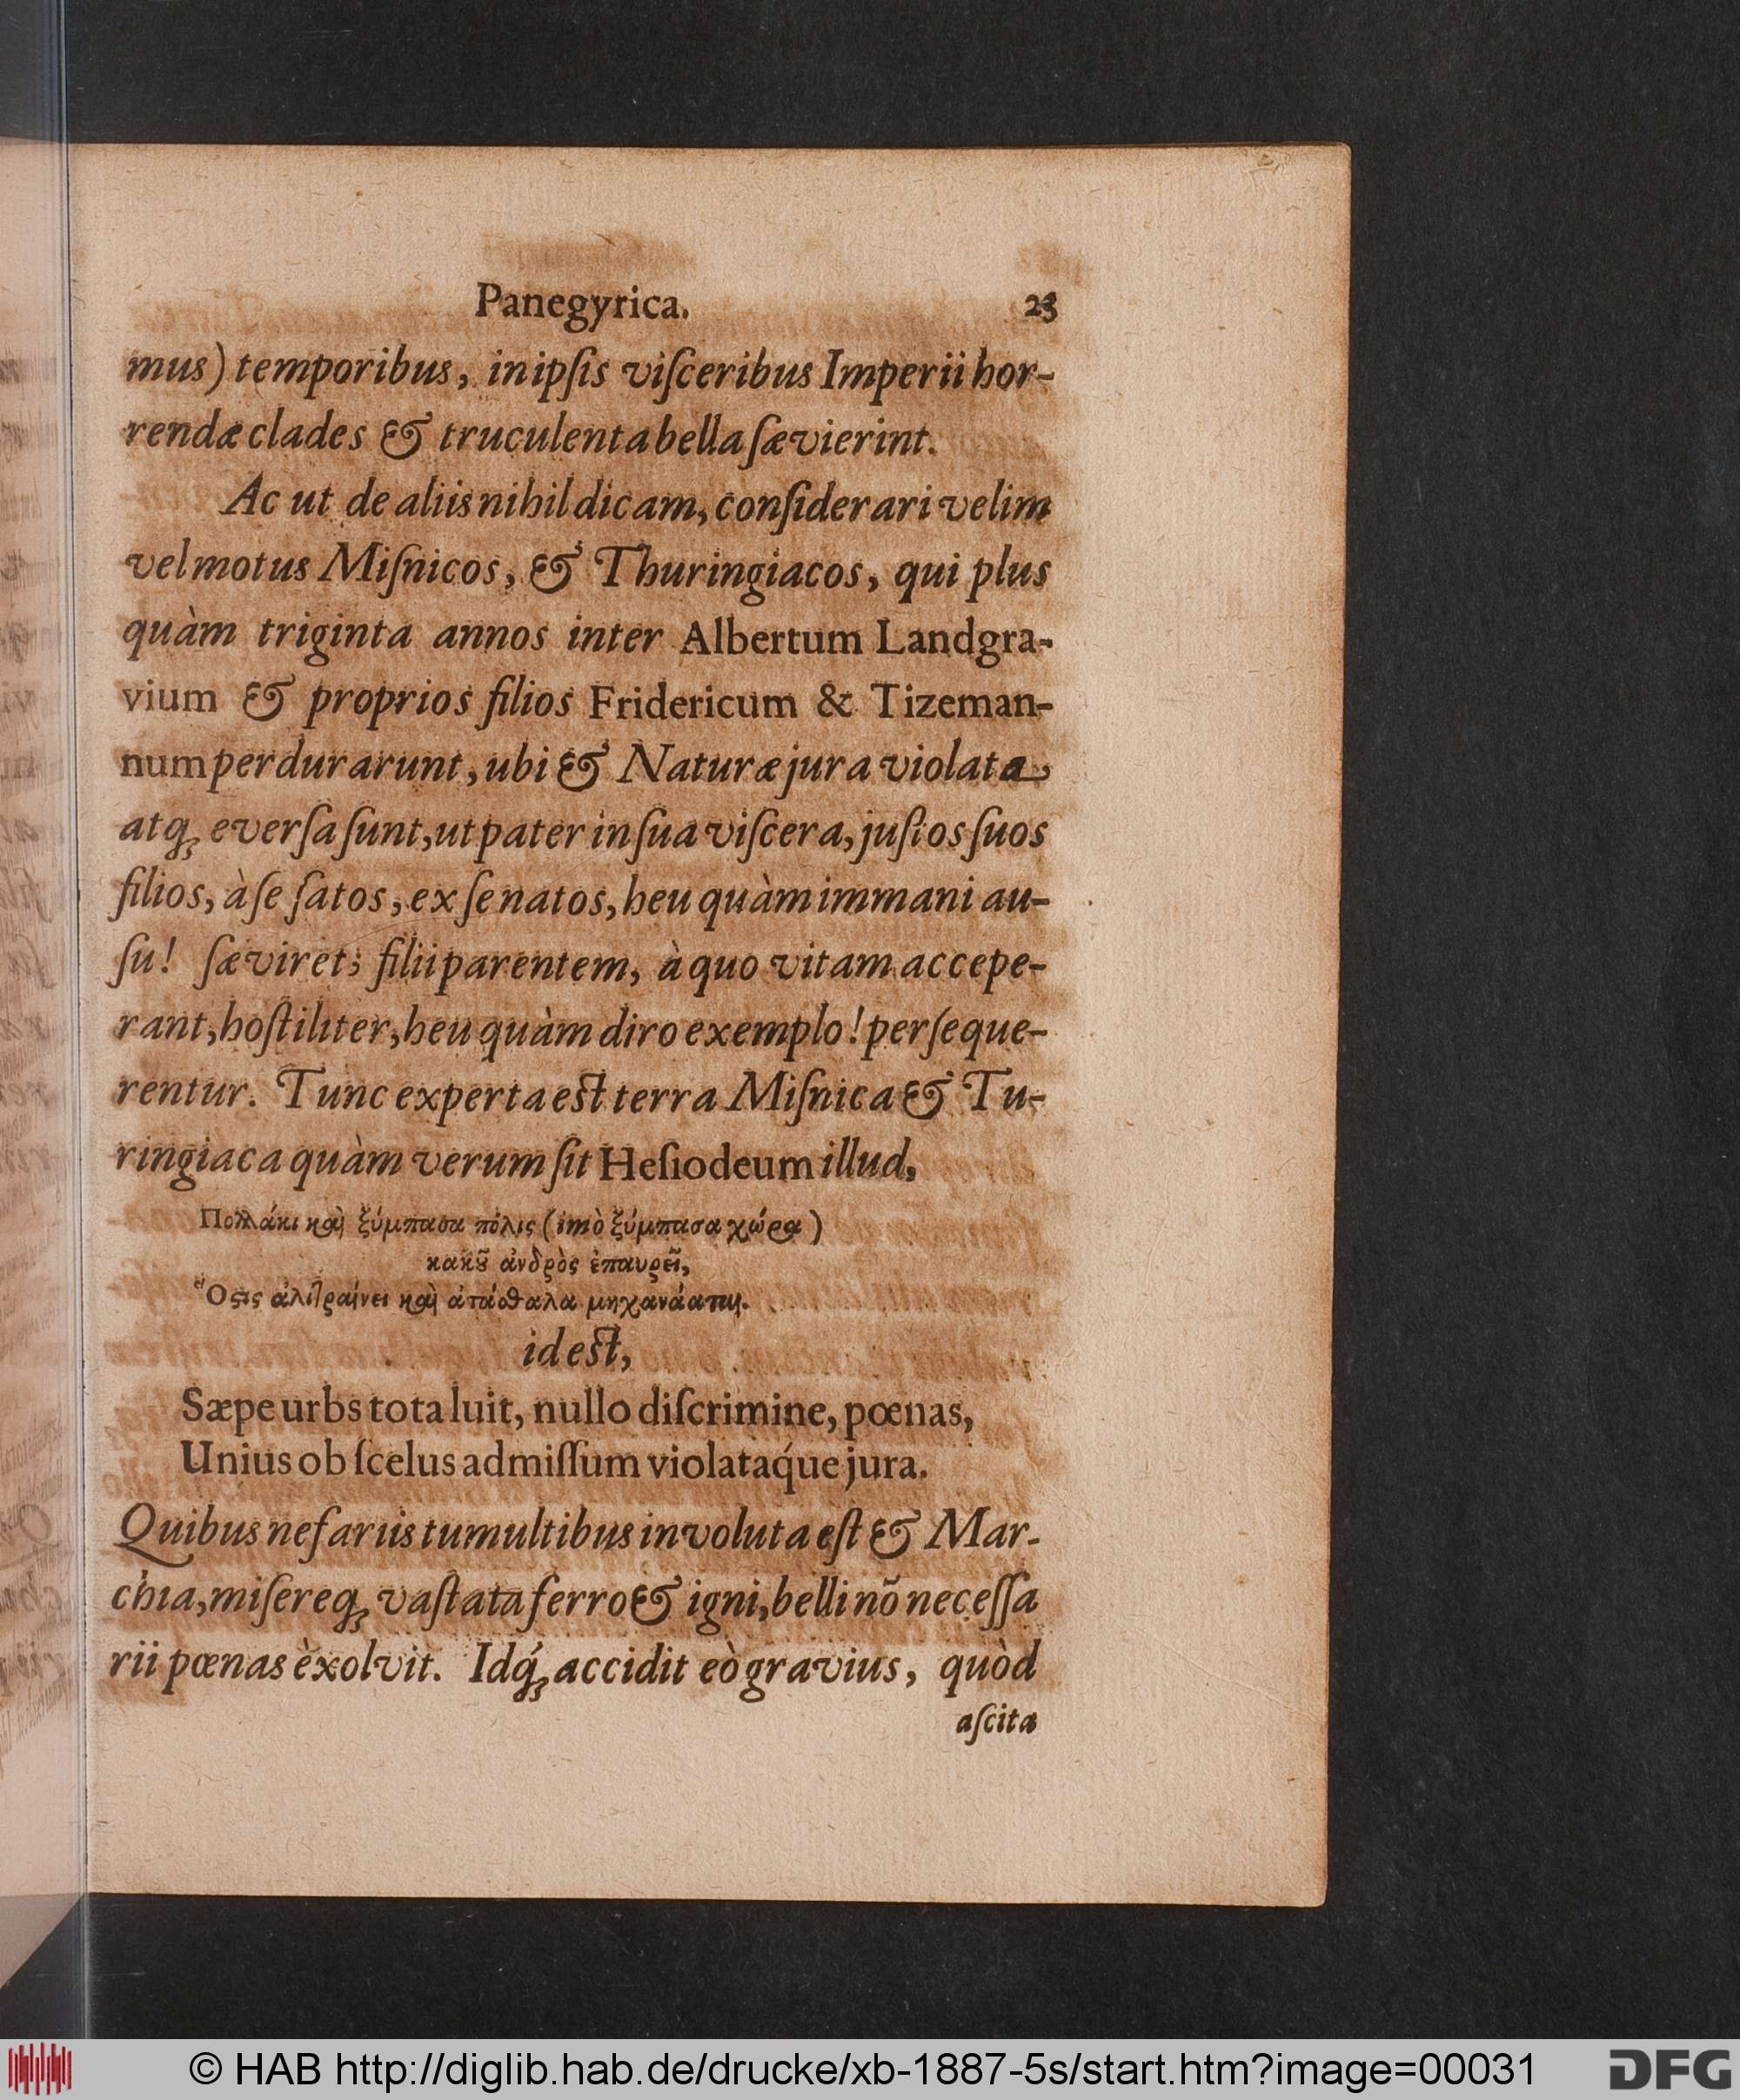 Panegyrica. 23
mus) temporibus, in ipſis viſceribus Imperii hor-
rendæ clades & truculenta bella ſævierint.
Ac ut de aliis nihil dicam, conſiderari velim
vel motus Miſnicos, & Thuringiacos, qui plus
quàm triginta annos inter Albertum Landgra-
vium & proprios filios Fridericum & Tizeman-
num perdurarunt, ubi & Naturæ jura violata
atq́; everſa ſunt, ut pater in ſua viſcera, juſtos ſuos
filios, à ſe ſatos, ex ſe natos, heu quàm immani au-
ſu! ſæviret; filii parentem, à quo vitam accepe-
rant, hoſtiliter, heu quàm diro exemplo! perſeque-
rentur. Tunc experta eſt terra Miſnica & Tu-
ringiaca quàm verum ſit Heſiodeum illud,
Πολλάκι καὶ ξύμπασα πόλις (ἰμὸ ξύμπασα χώρα)
κακοῦ ἀνδρὸς ἐπαυρεῖ,
Ὅστις ἀλιτραίνει καὶ ἀτάσθαλα μηχανάαται.
id eſt,
Sæpe urbs tota luit, nullo diſcrimine, pœnas,
Unius ob ſcelus admiſſum violataq́ue jura.
Quibus nefariis tumultibus involuta eſt & Mar-
chia, miſereq; vaſtata ferro & igni, belli nõ neceſſa
rii pœnas èxolvit. Idq́; accidit eò gravius, quòd
aſcita
© HAB http://diglib.hab.de/drucke/xb-1887-5s/start.htm?image=00031
DFG